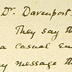 Dr. Davenport
They say th
a casual En
y message th